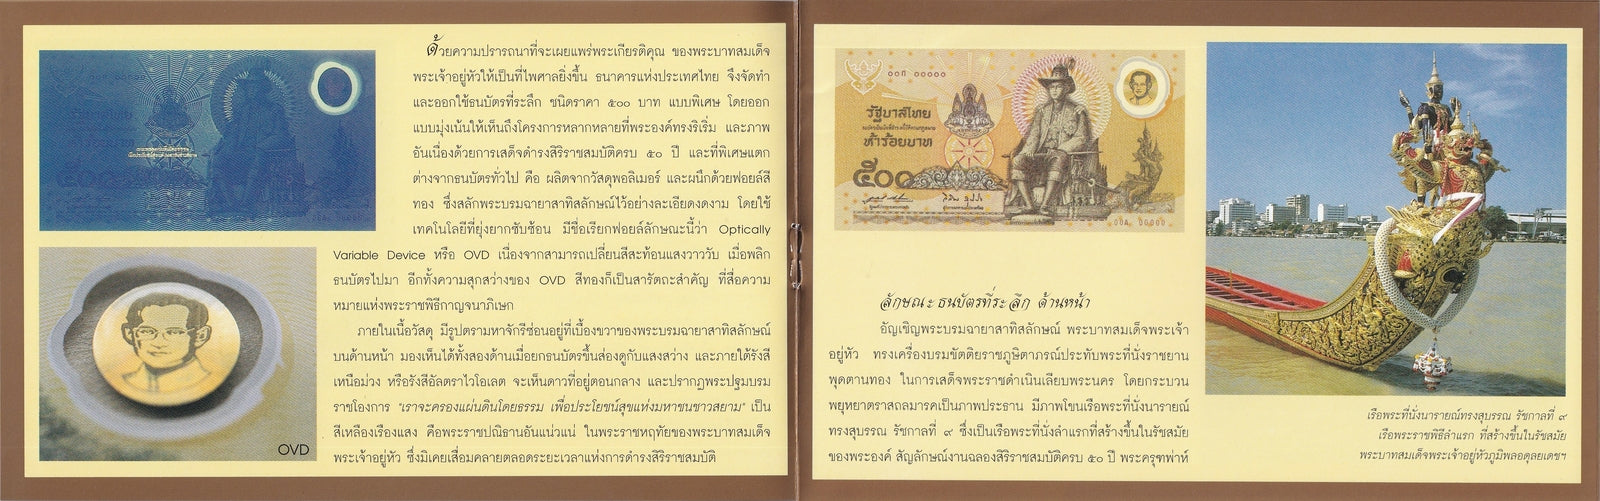 ด้วยความปรารถนาที่จะเผยแพร่พระเกียรติคุณ ของพระบาทสมเด็จ
พระเจ้าอยู่หัวให้เป็นที่ไพศาลยิ่งขึ้น ธนาคารแห่งประเทศไทย จึงจัดทำ
และออกใช้ธนบัตรที่ระลึก ชนิดราคา ๕๐๐ บาท แบบพิเศษ โดยออก
แบบมุ่งเน้นให้เห็นถึงโครงการหลากหลายที่พระองค์ทรงริเริ่ม และภาพ
อันเนื่องด้วยการเสด็จดำรงสิริราชสมบัติครบ ๕๐ ปี และที่พิเศษแตก
ต่างจากธนบัตรทั่วไป คือ ผลิตจากวัสดุพอลิเมอร์ และผนึกด้วยฟอยล์สี
ทอง ซึ่งสลักพระบรมฉายาสาทิสลักษณ์ไว้อย่างละเอียดงดงาม โดยใช้
เทคโนโลยีที่ยุ่งยากซับซ้อน มีชื่อเรียกฟอยล์ลักษณะนี้ว่า Optically
Variable Device หรือ OVD เนื่องจากสามารถเปลี่ยนสีสะท้อนแสงวาววับ เมื่อพลิก
ธนบัตรไปมา อีกทั้งความสุกสว่างของ OVD สีทองก็เป็นสารัตถะสำคัญ ที่สื่อความ
หมายแห่งพระราชพิธีกาญจนาภิเษก
ภายในเนื้อวัสดุ มีรูปตรามหาจักรีซ่อนอยู่ที่เบื้องขวาของพระบรมฉายาสาทิสลักษณ์
บนด้านหน้า มองเห็นได้ทั้งสองด้านเมื่อยกธนบัตรขึ้นส่องดูกับแสงสว่าง และภายใต้รังสี
เหนือม่วง หรือรังสีอัลตราไวโอเลต จะเห็นดาวที่อยู่ตอนกลาง และปรากฏพระปฐมบรม
ราชโองการ "เราจะครองแผ่นดินโดยธรรม เพื่อประโยชน์สุขแห่งมหาชนชาวสยาม" เป็น
สีเหลืองเรืองแสง คือพระราชปณิธานอันแน่วแน่ ในพระราชหฤทัยของพระบาทสมเด็จ
พระเจ้าอยู่หัว ซึ่งมิเคยเสื่อมคลายตลอดระยะเวลาแห่งการดำรงสิริราชสมบัติ
OVD
๐๐ก ๐๐๐๐๐
รัฐบาลไทย
ห้าร้อยบาท
๕๐๐
00A 00000
ลักษณะธนบัตรที่ระลึก ด้านหน้า
อัญเชิญพระบรมฉายาสาทิสลักษณ์ พระบาทสมเด็จพระเจ้า
อยู่หัว ทรงเครื่องบรมขัตติยราชภูษิตาภรณ์ประทับพระที่นั่งราชยาน
พุดตานทอง ในการเสด็จพระราชดำเนินเลียบพระนคร โดยกระบวน
พยุหยาตราสถลมารคเป็นภาพประธาน มีภาพโขนเรือพระที่นั่งนารายณ์
ทรงสุบรรณ รัชกาลที่ ๙ ซึ่งเป็นเรือพระที่นั่งลำแรกที่สร้างขึ้นในรัชสมัย
ของพระองค์ สัญลักษณ์งานฉลองสิริราชสมบัติครบ ๕๐ ปี พระครุฑพ่าห์
เรือพระที่นั่งนารายณ์ทรงสุบรรณ รัชกาลที่ ๙
เรือพระราชพิธีลำแรก ที่สร้างขึ้นในรัชสมัย
พระบาทสมเด็จพระเจ้าอยู่หัวภูมิพลอดุลยเดชฯ